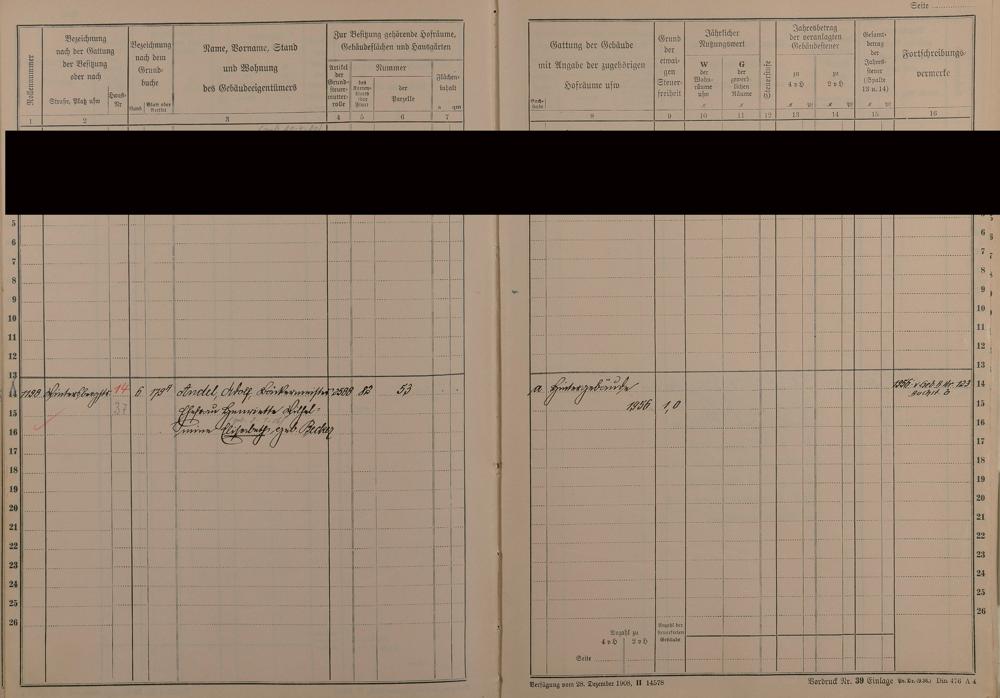 Seite
Rollennummer
Bezeichnung
nach der Gattung
der Besitzung
oder nach
Straße, Platz usw
Haus-
Nr
Bezeichnung
nach dem
Grund-
buche
Band
Blatt oder
Artikel
Name, Vorname, Stand
und Wohnung
des Gebäudeeigentümers
Zur Besitzung gehörende Hofräume,
Gebäudeflächen und Hausgärten
Artikel
der
Grund-
steuer-
mutter-
rolle
Nummer
des
Karten-
blatts
(der
Flur)
der
Parzelle
Flächen-
inhalt
a qm
1 2 3 4 5 6 7
Gattung der Gebäude
mit Angabe der zugehörigen
Hofräume usw
Buch-
stabe
Grund
der
etwai-
gen
Steuer-
freiheit
Jährlicher
Nutzungswert
W
der
Wohn-
räume
usw
G
der
gewerb-
lichen
Räume
Steuerstufe
Jahresbetrag
der veranlagten
Gebäudesteuer
zu
4 v H
zu
2 v H
Gesamt-
betrag
der
Jahres-
steuer
(Spalte
13 u. 14)
Fortschreibungs-
vermerke
8 9 10 11 12 13 14 15 16
5
6
7
8
9
10
11
12
13
14
15
16
17
18
19
20
21
22
23
24
25
26
1198 14 6 Andel, Adolf, Bäckermeister 2588 82 53
37 Ehefrau Henriette Wilhel-
mine Elisabeth, geb. Becker
a Hintergebäude
1956 1,0
1956
6
7
8
9
10
11
12
13
14
15
16
17
18
19
20
21
22
23
24
25
26
Anzahl zu
4 v H 2 v H
Anzahl der
steuerfreien
Gebäude
Seite
Verfügung vom 28. Dezember 1908, II 14578
Vordruck Nr. 39 Einlage Din 476 A 4